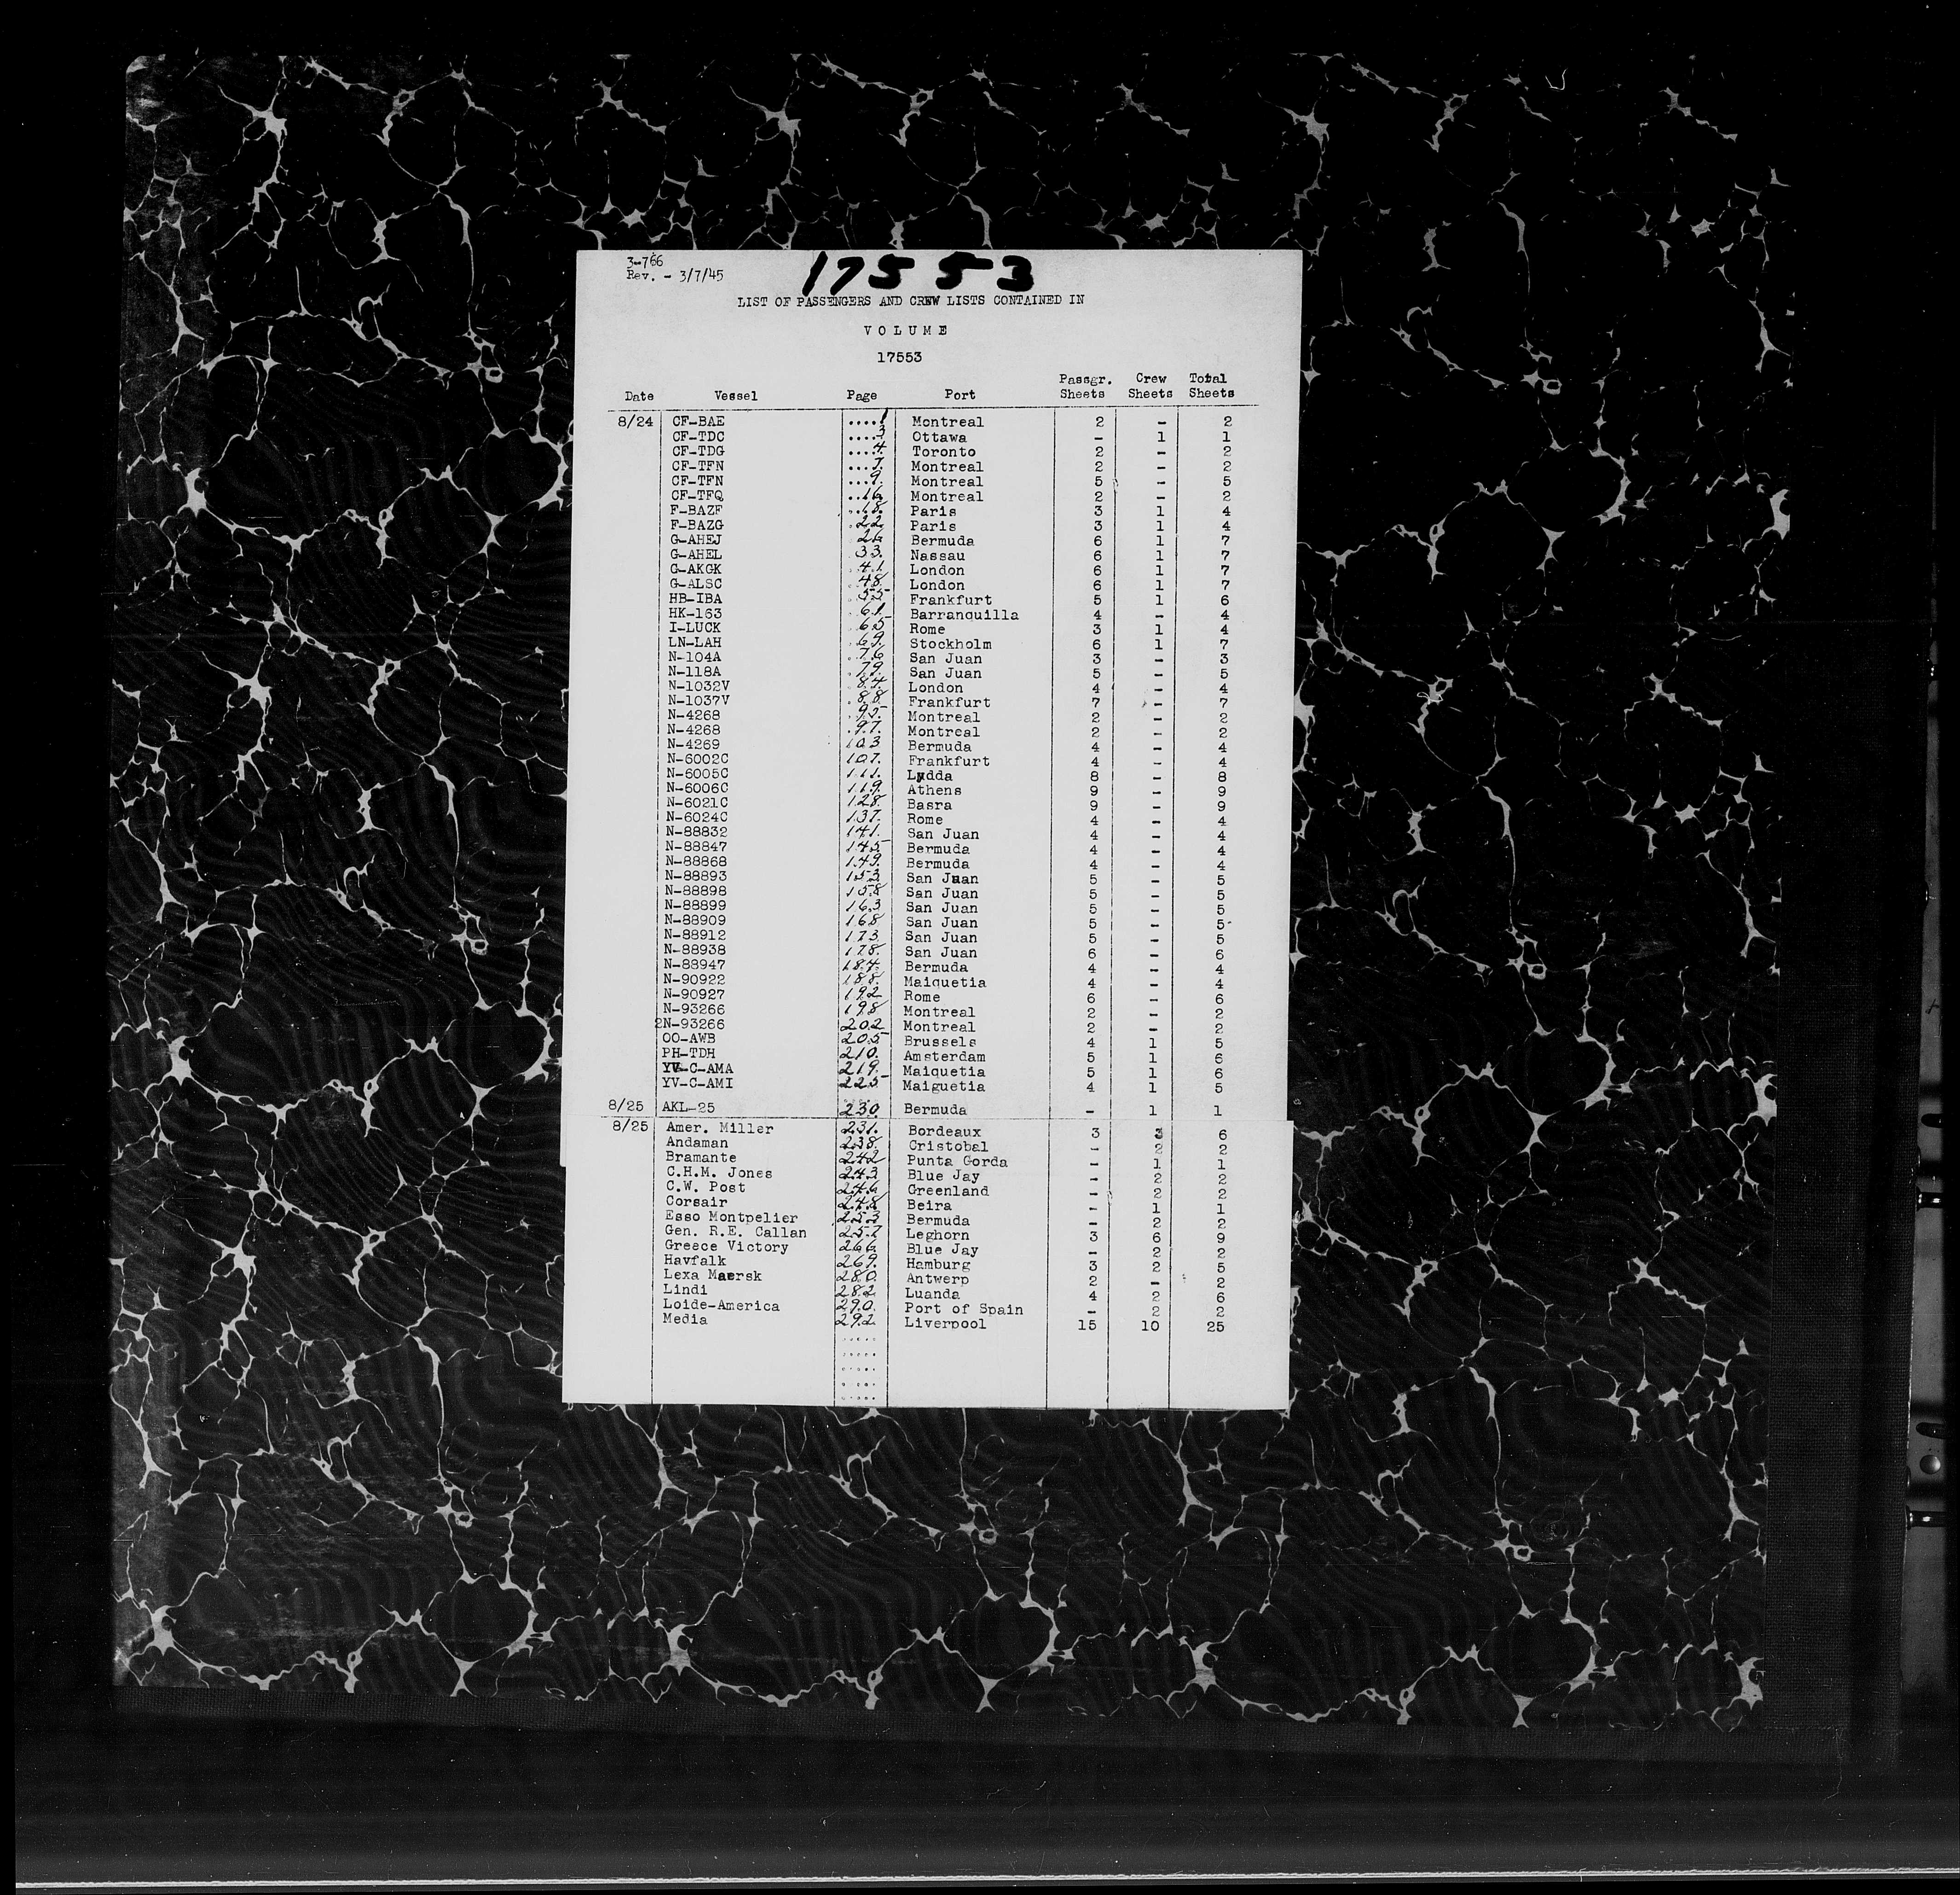 3-766
Rev. - 3/7/45
17553
LIST OF PASSENGERS AND CREW LISTS CONTAINED IN
VOLUME
17553
Date Vessel Page Port Passgr. Sheets Crew Sheets Total Sheets
8/24 CF-BAE ....1 Montreal 2 - 2
CF-TDC ....3 Ottawa - 1 1
CF-TDG ....4. Toronto 2 - 2
CF-TFN ....7. Montreal 2 - 2
CF-TFN ....9. Montreal 5 - 5
CF-TFQ ...16. Montreal 2 - 2
F-BAZF ..18. Paris 3 1 4
F-BAZG .22. Paris 3 1 4
G-AHEJ 26 Bermuda 6 1 7
G-AHEL 33. Nassau 6 1 7
G-AKGK .41. London 6 1 7
G-ALSC .48. London 6 1 7
HB-IBA .55. Frankfurt 5 1 6
HK-163 .61. Barranquilla 4 - 4
I-LUCK .65 Rome 3 1 4
LN-LAH .69. Stockholm 6 1 7
N-104A .76 San Juan 3 - 3
N-118A .79. San Juan 5 - 5
N-1032V .84. London 4 - 4
N-1037V .88. Frankfurt 7 - 7
N-4268 .95. Montreal 2 - 2
N-4268 .97. Montreal 2 - 2
N-4269 103 Bermuda 4 - 4
N-6002C 107. Frankfurt 4 - 4
N-6005C 111. Lydda 8 - 8
N-6006C 119. Athens 9 - 9
N-6021C 128. Basra 9 - 9
N-6024C 137. Rome 4 - 4
N-88832 141. San Juan 4 - 4
N-88847 145 Bermuda 4 - 4
N-88868 149. Bermuda 4 - 4
N-88893 153. San Juan 5 - 5
N-88898 158 San Juan 5 - 5
N-88899 163 San Juan 5 - 5
N-88909 168 San Juan 5 - 5
N-88912 173 San Juan 5 - 5
N-88938 178. San Juan 6 - 6
N-88947 184. Bermuda 4 - 4
N-90922 188. Maiquetia 4 - 4
N-90927 192 Rome 6 - 6
N-93266 198 Montreal 2 - 2
2N-93266 202 Montreal 2 - 2
OO-AWB 205 Brussels 4 1 5
PH-TDH 210. Amsterdam 5 1 6
YV-C-AMA 219. Maiquetia 5 1 6
YV-C-AMI 225 Maiguetia 4 1 5
8/25 AKL-25 230. Bermuda - 1 1
8/25 Amer. Miller 231. Bordeaux 3 3 6
Andaman 238. Cristobal - 2 2
Bramante 242 Punta Gorda - 1 1
C.H.M. Jones 243 Blue Jay - 2 2
C.W. Post 246 Greenland - 2 2
Corsair 248 Beira - 1 1
Esso Montpelier 253 Bermuda - 2 2
Gen. R.E. Callan 257 Leghorn 3 6 9
Greece Victory 266. Blue Jay - 2 2
Havfalk 269. Hamburg 3 2 5
Lexa Maersk 280. Antwerp 2 - 2
Lindi 282. Luanda 4 2 6
Loide-America 290. Port of Spain - 2 2
Media 292. Liverpool 15 10 25